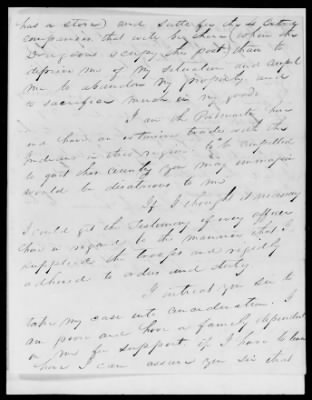 has a store) and Sutler for the 2 Entry
companies that will be here (when the
Dragoons occupy the post) than to
deprive me of my situation and compel
me to abandon my property and
to sacrifice much in my goods.
I am the Postmaster here
and have an extensive trade with the
Indians in this region. to be compelled
to quit this country you may immagin
would be disastrous to me
If I thought it necessary
I could get the Testimony of every officer
here in regard to the manner that I
supplied the troops and rigidly
adhered to orders and duty
I intreat you sir to
take my case into consideration. I
am poor and have a family dependent
on me for support if I have to leave
here I can assure you sir that